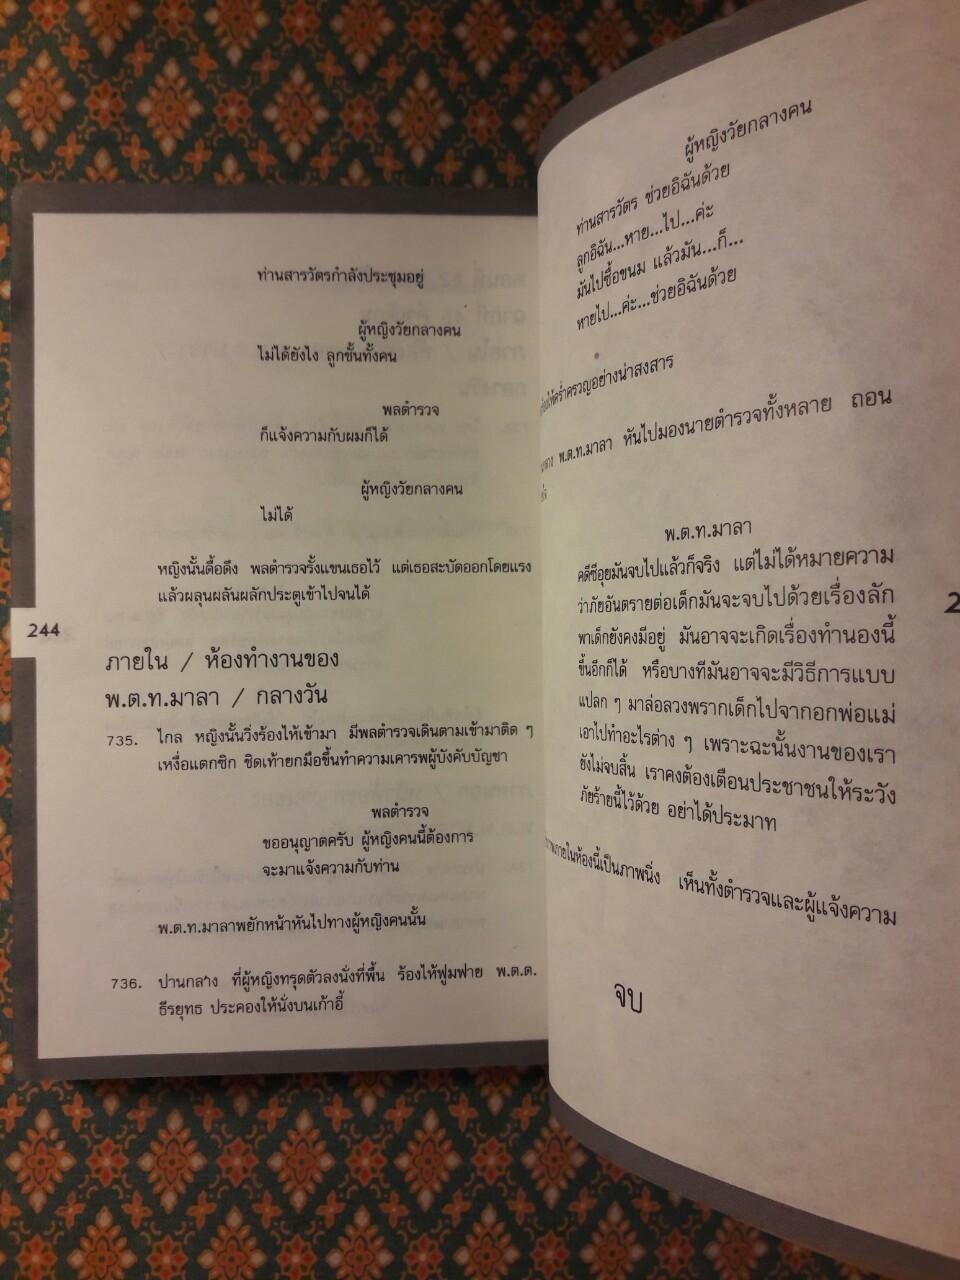 ท่านสารวัตรกำลังประชุมอยู่
ผู้หญิงวัยกลางคน
ไม่ได้ยังไง ลูกชั้นทั้งคน
พลตำรวจ
ก็แจ้งความกับผมก็ได้
ผู้หญิงวัยกลางคน
ไม่ได้
หญิงนั้นดื้อดึง พลตำรวจรั้งแขนเธอไว้ แต่เธอสะบัดออกโดยแรง
แล้วผลุนผลันผลักประตูเข้าไปจนได้
244
ภายใน / ห้องทำงานของ
พ.ต.ท.มาลา / กลางวัน
735. ไกล หญิงนั้นวิ่งร้องไห้เข้ามา มีพลตำรวจเดินตามเข้ามาติด ๆ
เหงื่อแตกซิก ชิดเท้ายกมือขึ้นทำความเคารพผู้บังคับบัญชา
พลตำรวจ
ขออนุญาตครับ ผู้หญิงคนนี้ต้องการ
จะมาแจ้งความกับท่าน
พ.ต.ท.มาลาพยักหน้าหันไปทางผู้หญิงคนนั้น
736. ปานกลาง ที่ผู้หญิงทรุดตัวลงนั่งที่พื้น ร้องไห้ฟูมฟาย พ.ต.ต.
ธีรยุทธ ประคองให้นั่งบนเก้าอี้
ผู้หญิงวัยกลางคน
ท่านสารวัตร ช่วยอิฉันด้วย
ลูกอิฉัน...หาย...ไป...ค่ะ
มันไปซื้อขนม แล้วมัน...ก็...
หายไป...ค่ะ...ช่วยอิฉันด้วย
คร่ำครวญอย่างน่าสงสาร
พ.ต.ท.มาลา หันไปมองนายตำรวจทั้งหลาย ถอน
พ.ต.ท.มาลา
คดีซีอุยมันจบไปแล้วก็จริง แต่ไม่ได้หมายความ
ว่าภัยอันตรายต่อเด็กมันจะจบไปด้วยเรื่องลัก
พาเด็กยังคงมีอยู่ มันอาจจะเกิดเรื่องทำนองนี้
ขึ้นอีกก็ได้ หรือบางทีมันอาจจะมีวิธีการแบบ
แปลก ๆ มาล่อลวงพรากเด็กไปจากอกพ่อแม่
เอาไปทำอะไรต่าง ๆ เพราะฉะนั้นงานของเรา
ยังไม่จบสิ้น เราคงต้องเตือนประชาชนให้ระวัง
ภัยร้ายนี้ไว้ด้วย อย่าได้ประมาท
ภายในห้องนี้เป็นภาพนิ่ง เห็นทั้งตำรวจและผู้แจ้งความ
จบ